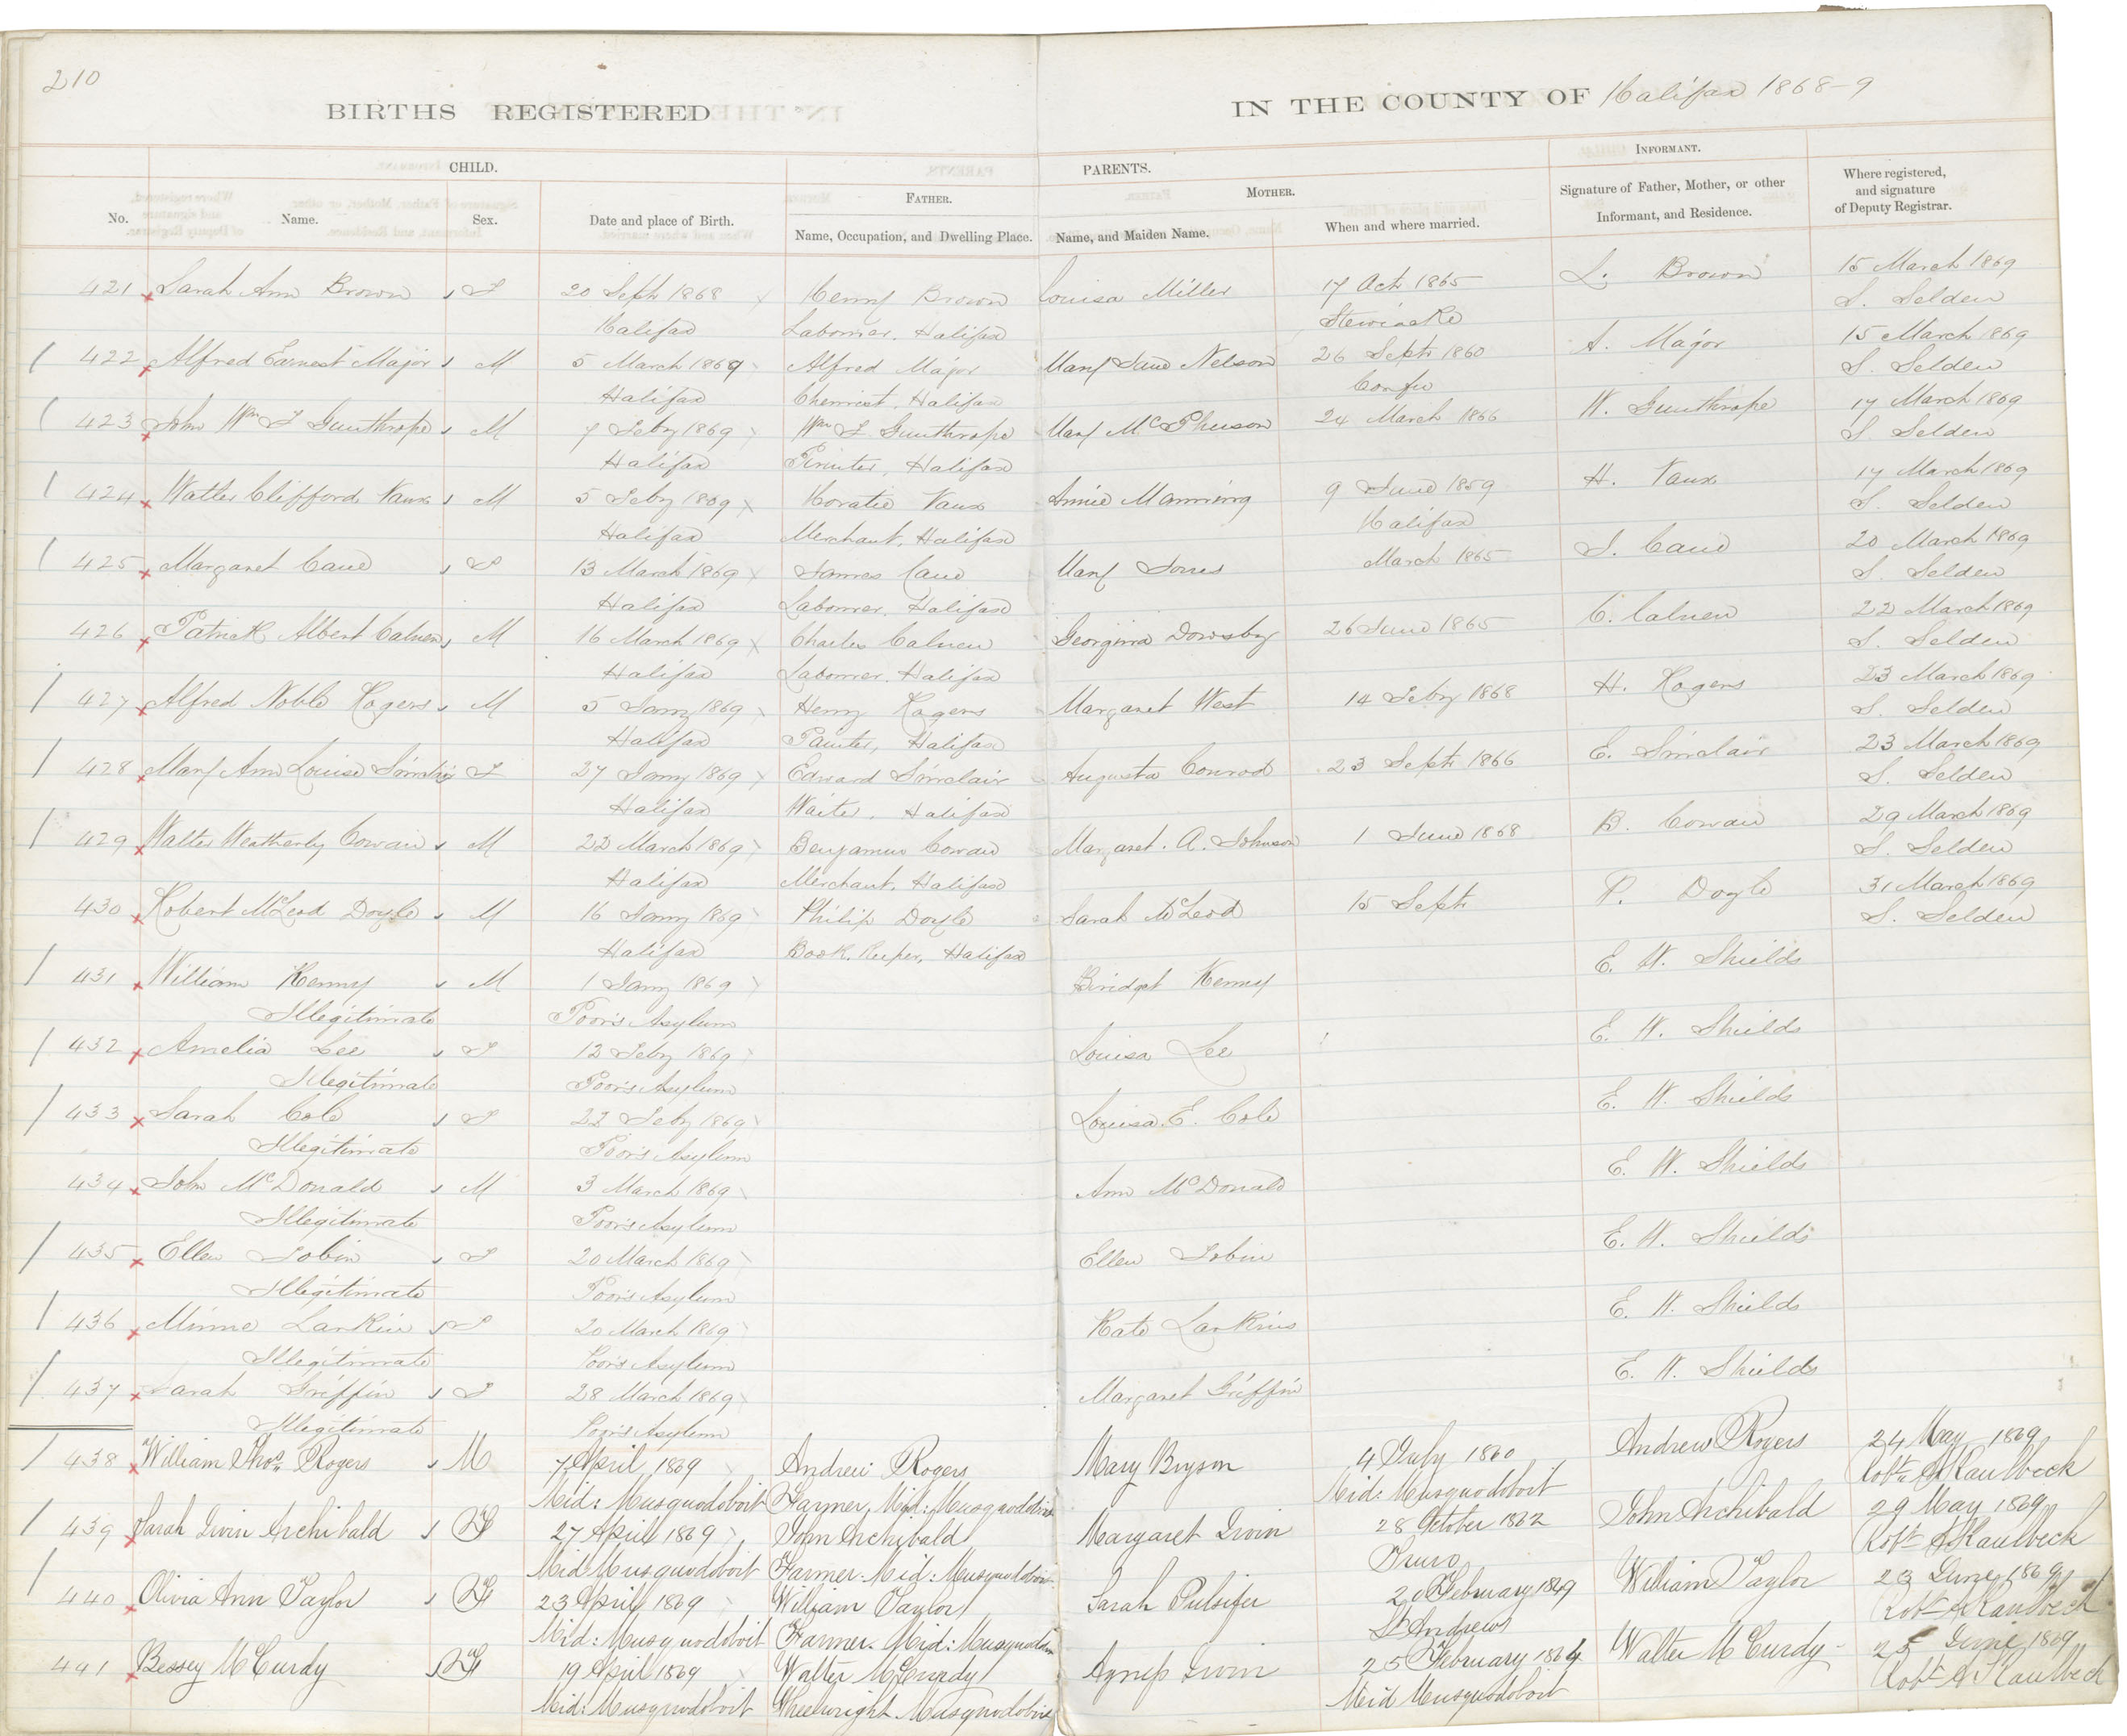 210
BIRTHS REGISTERED IN THE COUNTY OF Halifax 1868-9
CHILD. PARENTS. INFORMANT.
FATHER. MOTHER.
No. Name. Sex. Date and place of Birth. Name, Occupation, and Dwelling Place. Name, and Maiden Name. When and where married. Signature of Father, Mother, or other Informant, and Residence. Where registered, and signature of Deputy Registrar.
421 Sarah Ann Brown F 20 Sept 1868 Henry Brown Louisa Miller 17 Oct 1865 L. Brown 15 March 1869
Halifax Laborer, Halifax Stewiacke S. Selden
422 Alfred Earnest Major M 5 March 1869 Alfred Major Mary Jane Nelson 26 Sept 1860 A. Major 15 March 1869
Halifax Chemist, Halifax Corfu S. Selden
423 John Wm F Gunthrope M 7 Feby 1869 Wm F Gunthrope Mary McPherson 24 March 1866 W. Gunthrope 17 March 1869
Halifax Printer, Halifax S Selden
424 Walter Clifford Vaux M 5 Feby 1869 Horatio Vaux Annie Manning 9 June 1859 H. Vaux 17 March 1869
Halifax Merchant, Halifax Halifax S. Selden
425 Margaret Cane F 13 March 1869 James Cane Mary Jones March 1865 J. Cane 20 March 1869
Halifax Laborer, Halifax S. Selden
426 Patrick Albert Calnen M 16 March 1869 Charles Calnen Georgina Dowsby 26 June 1865 C. Calnen 22 March 1869
Halifax Laborer, Halifax S. Selden
427 Alfred Noble Rogers M 5 Jany 1869 Henry Rogers Margaret West 14 Feby 1868 H. Rogers 23 March 1869
Halifax Painter, Halifax S. Selden
428 Mary Ann Louise Sinclair F 27 Jany 1869 Edward Sinclair Augusta Conrod 23 Sept 1866 E. Sinclair 23 March 1869
Halifax Waiter, Halifax S. Selden
429 Walter Weatherby Cowan M 22 March 1869 Benjamin Cowan Margaret. A. Johnson 1 June 1868 B. Cowan 29 March 1869
Halifax Merchant, Halifax S. Selden
430 Robert McLeod Doyle M 16 Jany 1869 Philip Doyle Sarah McLeod 15 Sept P. Doyle 31 March 1869
Halifax Book. Keeper, Halifax S. Selden
431 William Kenny M 1 Jany 1869 Bridget Kenny E. W. Shields
Illegitimate Poor's Asylum
432 Amelia Lee F 12 Feby 1869 Louisa Lee E. W. Shields
Illegitimate Poor's Asylum
433 Sarah Cole F 22 Feby 1869 Louisa. E. Cole E. W. Shields
Illegitimate Poor's Asylum
434 John McDonald M 3 March 1869 Ann McDonald E. W. Shields
Illegitimate Poor's Asylum
435 Ellen Tobin F 20 March 1869 Ellen Tobin E. W. Shields
Illegitimate Poor's Asylum
436 Minne Larkin F 20 March 1869 Kate Larkins E. W. Shields
Illegitimate Poor's Asylum
437 Sarah Griffin F 28 March 1869 Margaret Griffin E. W. Shields
Illegitimate Poor's Asylum
438 William Thos. Rogers M 7 April 1869 Andrew Rogers Mary Bryson 4 July 1860 Andrew Rogers 24 May 1869
Mid: Musquodoboit Farmer, Mid: Musquodoboit Mid: Musquodoboit Robt A Kaulbeck
439 Sarah Irvin Archibald F 27 April 1869 John Archibald Margaret Irvin 28 October 1862 John Archibald 29 May 1869
Mid Musquodoboit Farmer. Mid: Musquodoboit Truro Robt A Kaulbeck
440 Olivia Ann Taylor F 23 April 1869 William Taylor Sarah Pulsifer February 1849 William Taylor 23 June 1869
Mid: Musquodoboit Farmer. Mid: Musquodoboit St Andrews Robt A Kaulbeck
441 Bessey McCurdy F 19 April 1869 Walter McCurdy Agness Irvin 25 February 1864 Walter McCurdy 25 June 1869
Mid: Musquodoboit Wheelwright. Musquodoboit Mid Musquodoboit Robt A Kaulbeck